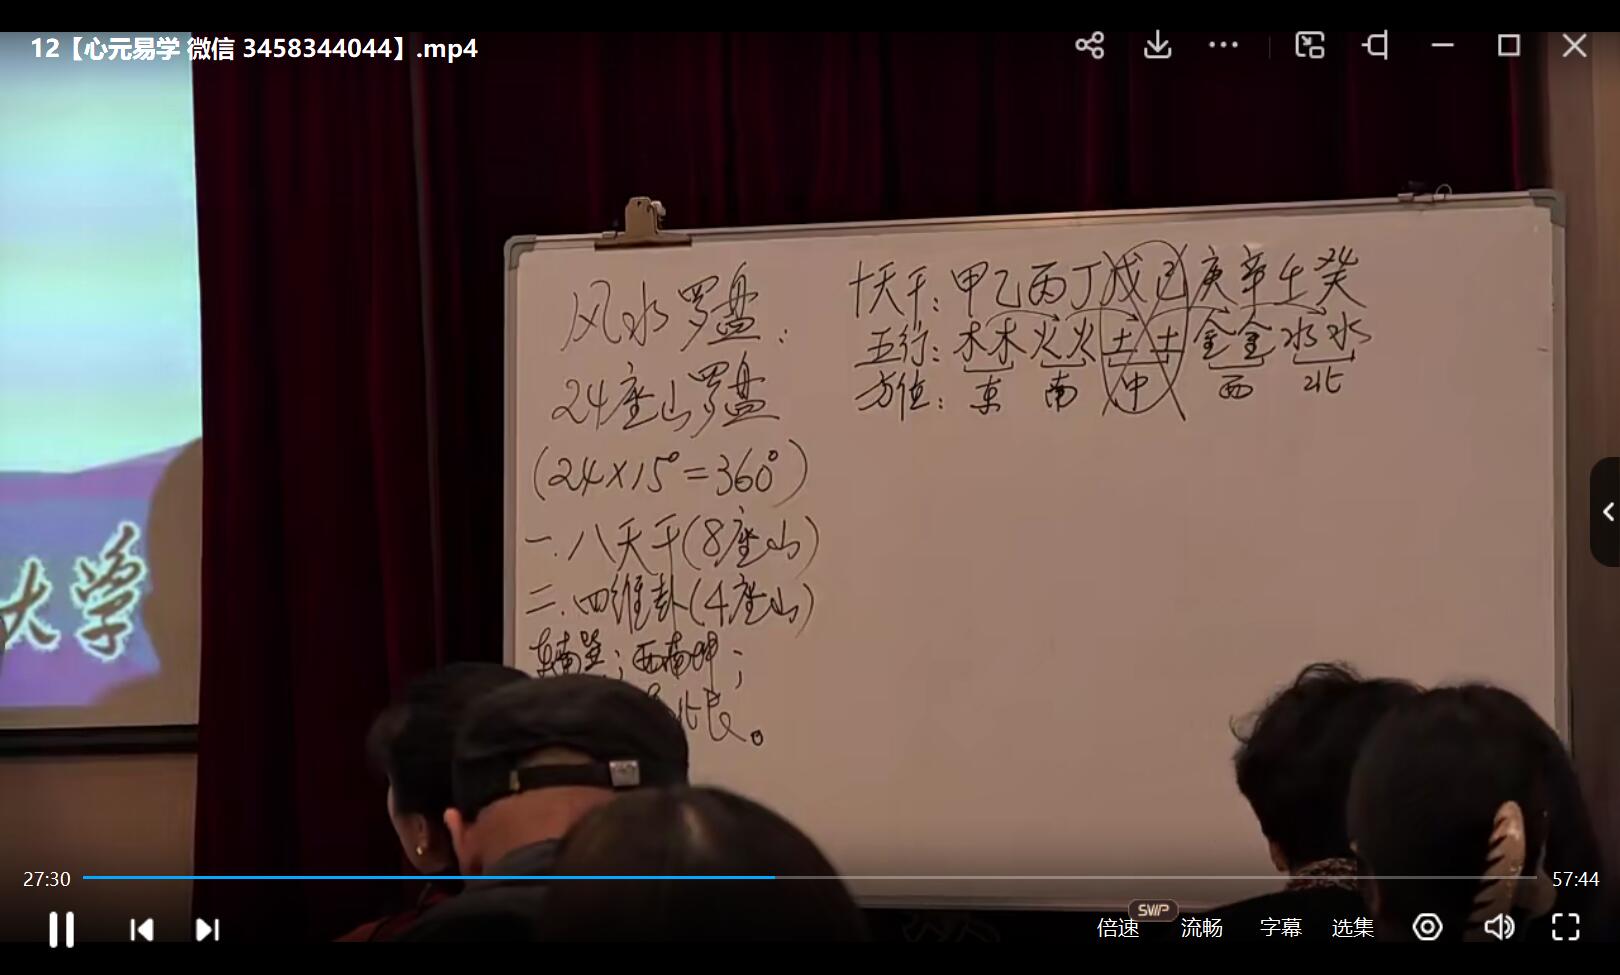 12【心元易学 微信 3458344044】.mp4
风水罗盘:
24座山罗盘
(24×15°=360°)
一.八天干(8座山)
二.四维卦(4座山)
东南巽;西南坤;
北艮。
十天干:甲乙丙丁戊己庚辛壬癸
五行:木木火火土土金金水水
方位:东 南 中 西 北
大学
27:30
57:44
SWP
倍速 流畅 字幕 选集